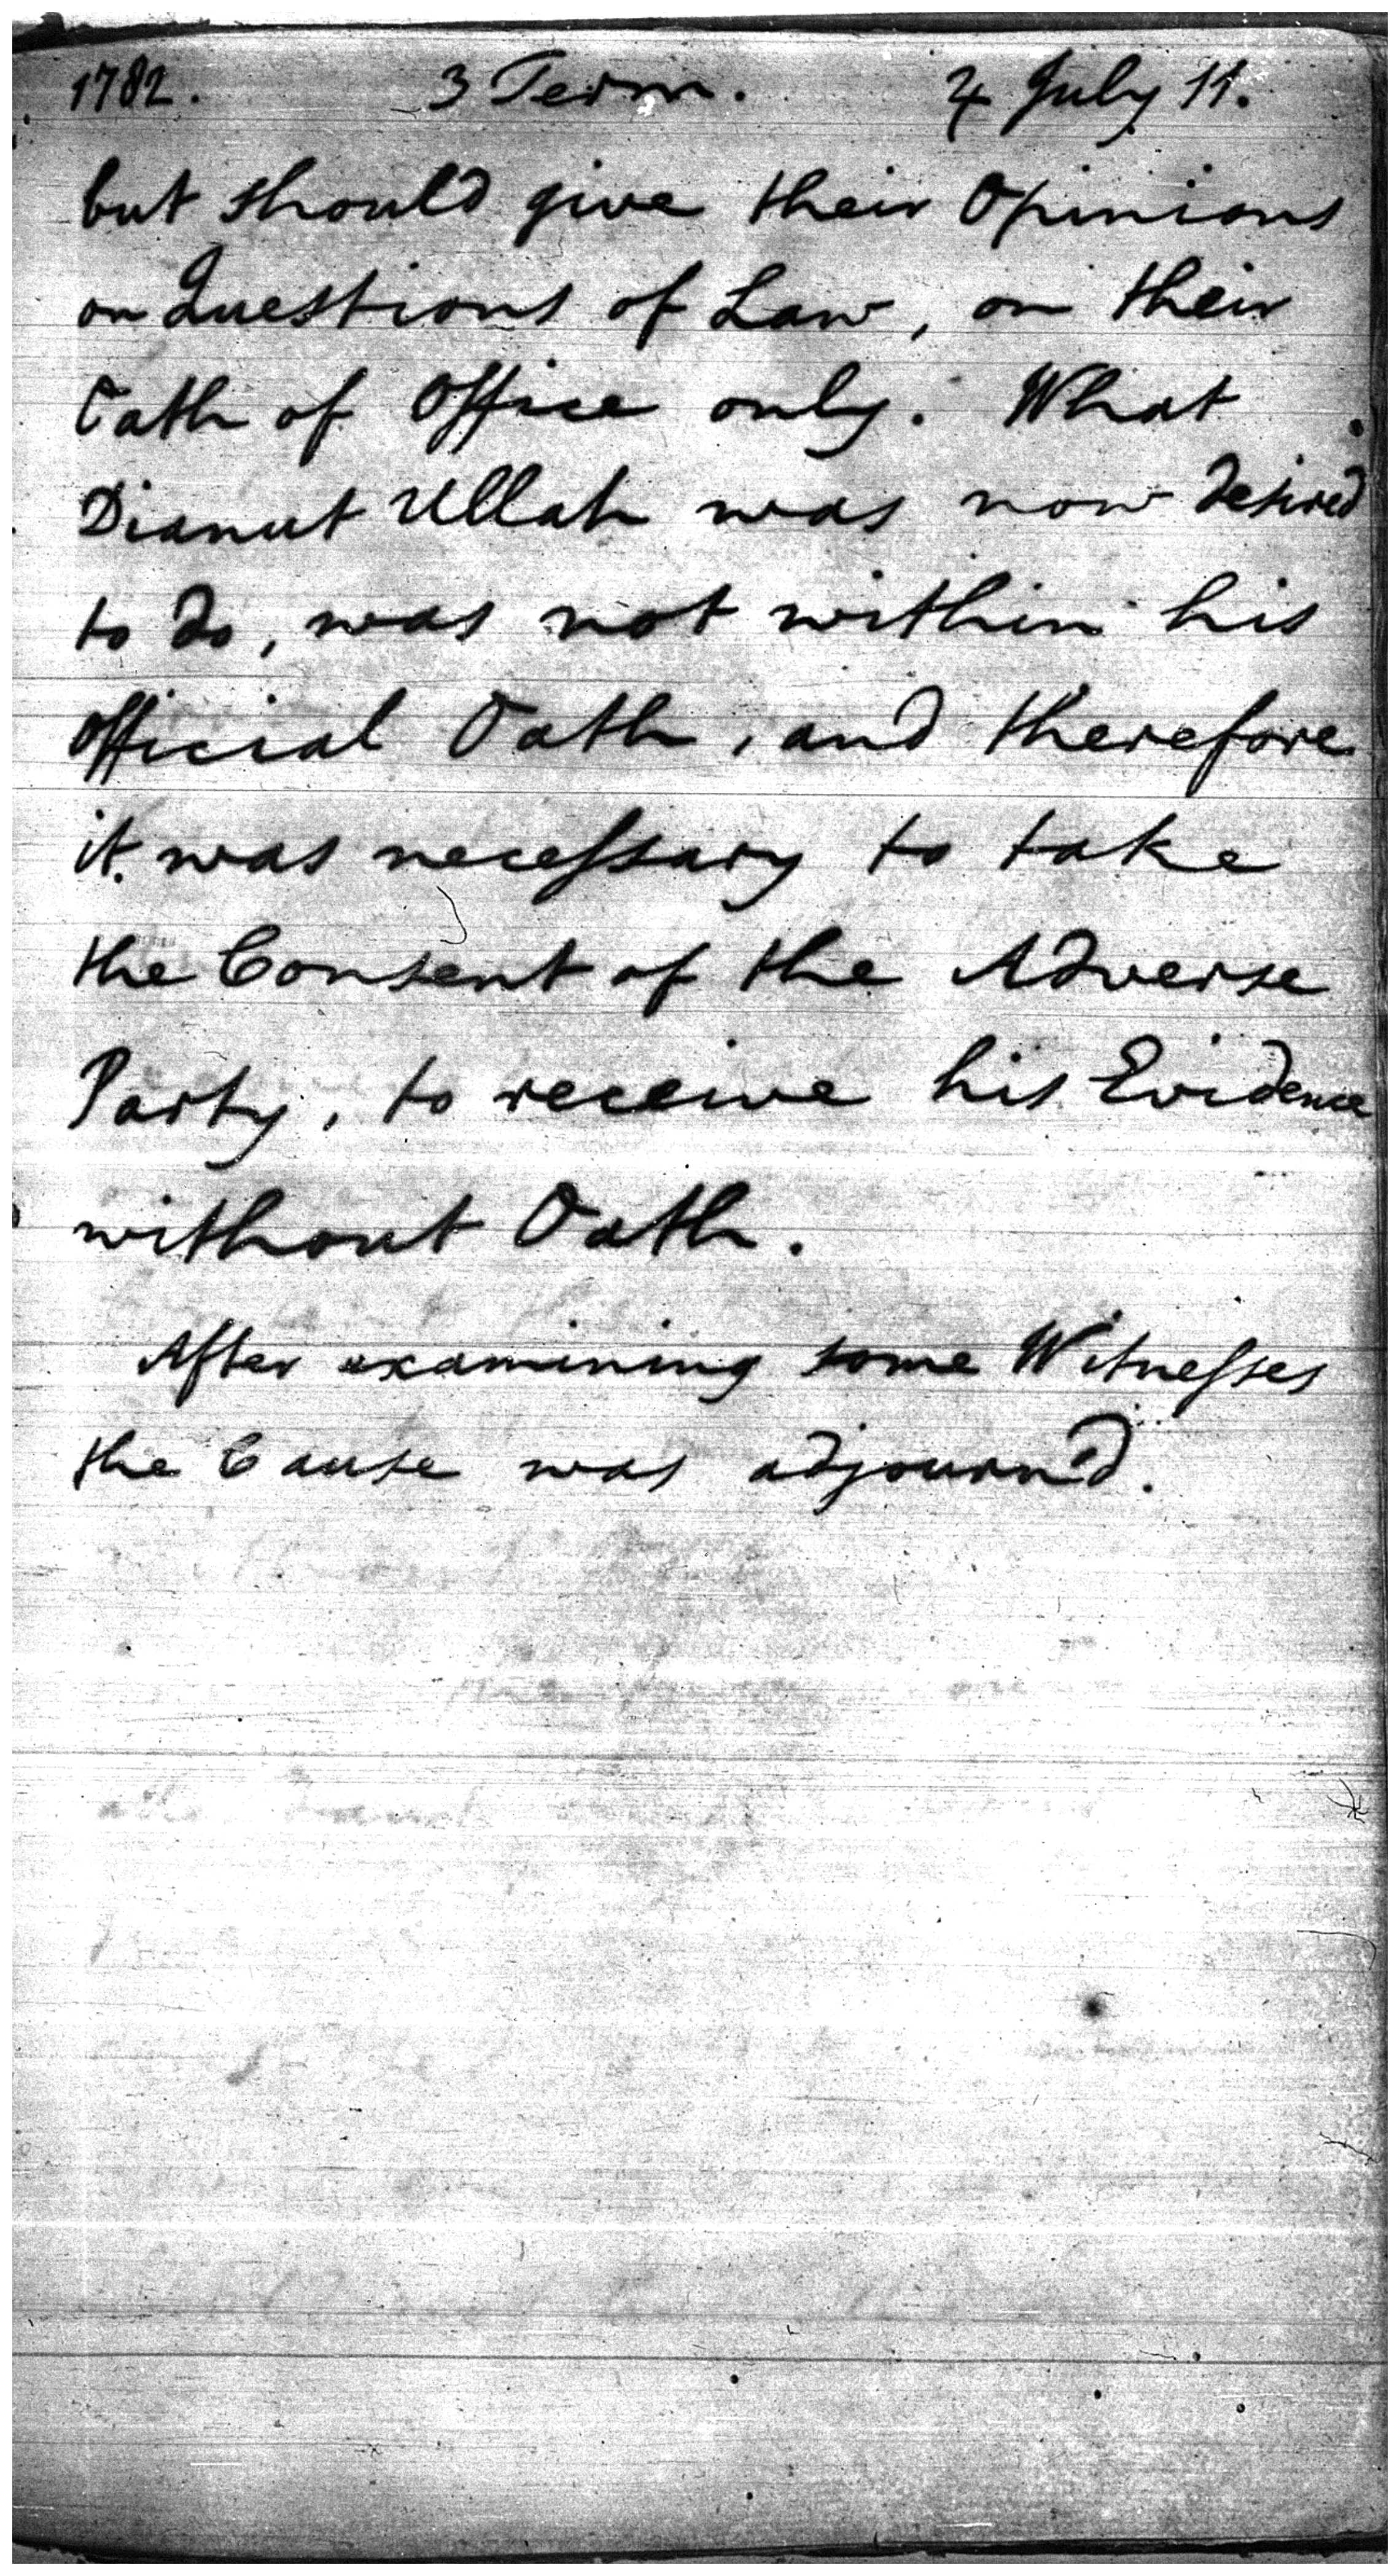 1782. 3 Term. 4 July 11.
but should give their Opinions
on Questions of Law, on their
Oath of Office only. What
Dianut Ullah was now desired
to do, was not within his
official Oath, and therefore
it was necessary to take
the Consent of the Adverse
Party, to receive his Evidence
without Oath.
After examining some Witnesses
the Cause was adjourn'd.